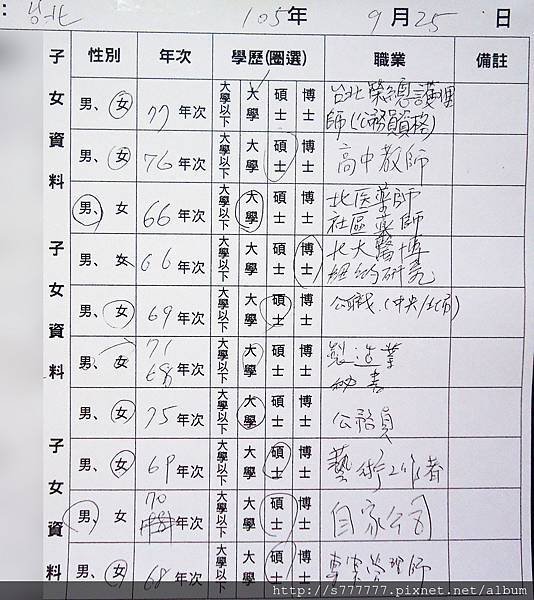 ： 台北 105年 9月25 日
子女資料 性別 年次 學歷(圈選) 職業 備註
男、女 77年次 大學以下 大學 碩士 博士 台北榮總護理
師(公務員資格)
男、女 76年次 大學以下 大學 碩士 博士 高中教師
男、女 66年次 大學以下 大學 碩士 博士 北医藥師
社區藥師
子女資料
男、女 66年次 大學以下 大學 碩士 博士 北大醫博
紐約研究
男、女 69年次 大學以下 大學 碩士 博士 公職.(中央/北市)
男、女 71
68年次 大學以下 大學 碩士 博士 製造業
秘書
男、女 75年次 大學以下 大學 碩士 博士 公務員
子女資料
男、女 69年次 大學以下 大學 碩士 博士 藝術工作者
男、女 70
年次 大學以下 大學 碩士 博士 自家公司
男、女 68年次 大學以下 大學 碩士 博士 專案管理師
http://s777777.pixnet.net/album